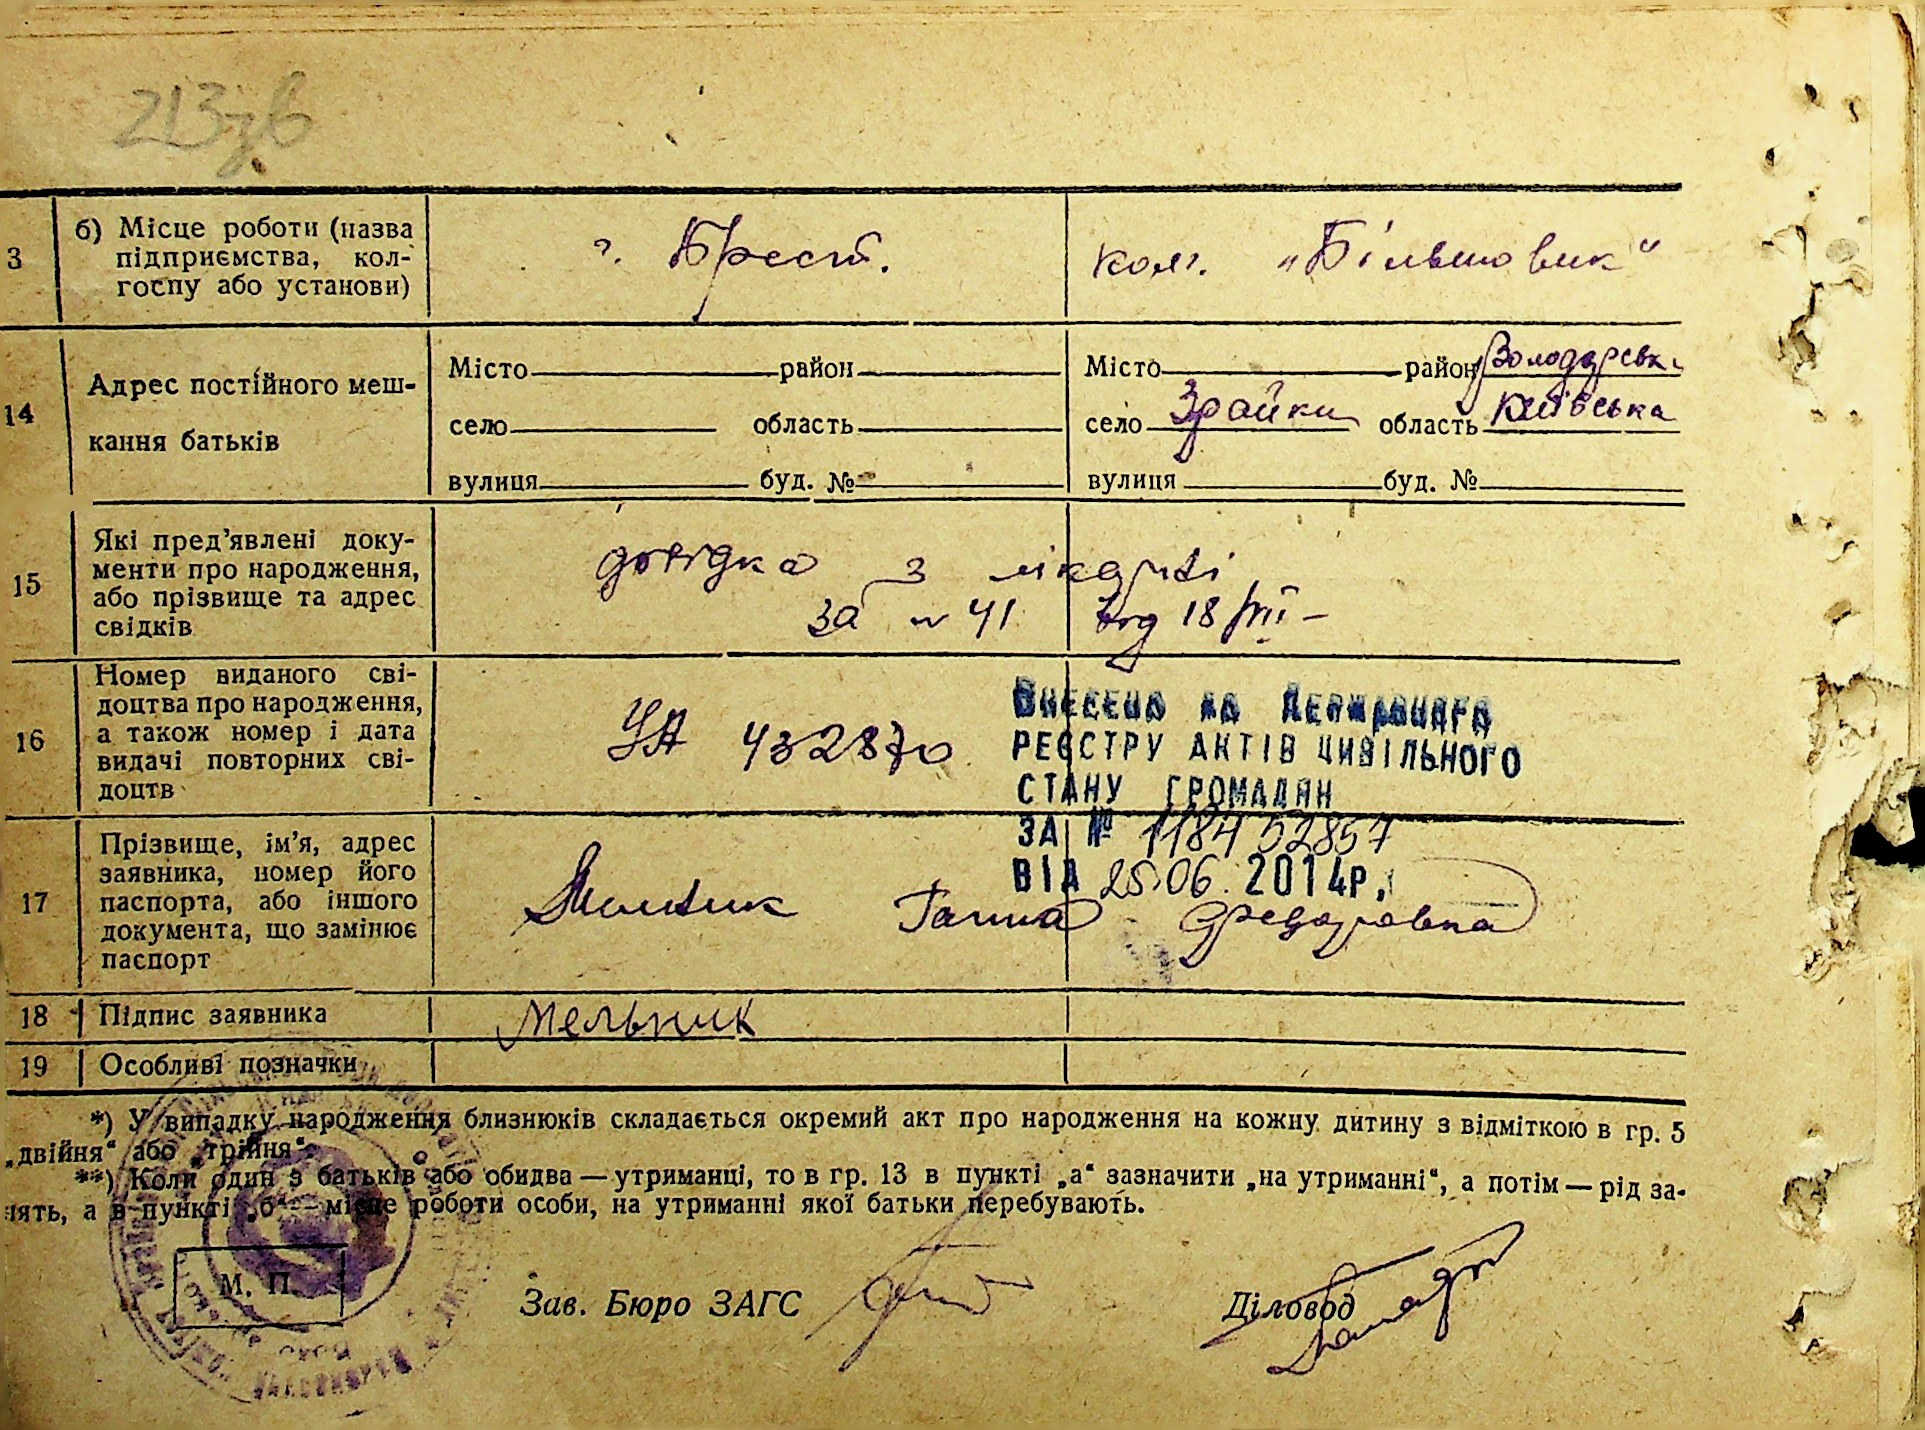 213зв
3 б) Місце роботи (назва підприємства, колгоспу або установи) г. Брест. колг. "Більшовик"
14 Адрес постійного мешкання батьків
Місто район Місто район Володарськ.
село область село Зрайки область Київська
вулиця буд. № вулиця буд. №
15 Які пред'явлені документи про народження, або прізвище та адрес свідків
довідка з лікарні
за № 41 від 18/VIII-
16 Номер виданого свідоцтва про народження, а також номер і дата видачі повторних свідоцтв
УА 432870
Внесено до Державного
реєстру актів цивільного
стану громадян
за № 118452857
від 25.06.2014р.
17 Прізвище, ім'я, адрес заявника, номер його паспорта, або іншого документа, що замінює паспорт
Мельник Ганна Федоровна
18 Підпис заявника Мельник
19 Особливі позначки
*) У випадку народження близнюків складається окремий акт про народження на кожну дитину з відміткою в гр. 5
„двійня“ або „трійня“.
**) Коли один з батьків або обидва — утриманці, то в гр. 13 в пункті „а“ зазначити „на утриманні“, а потім — рід за-
нять, а в пункті „б“ — місце роботи особи, на утриманні якої батьки перебувають.
М. П.
Зав. Бюро ЗАГС Діловод